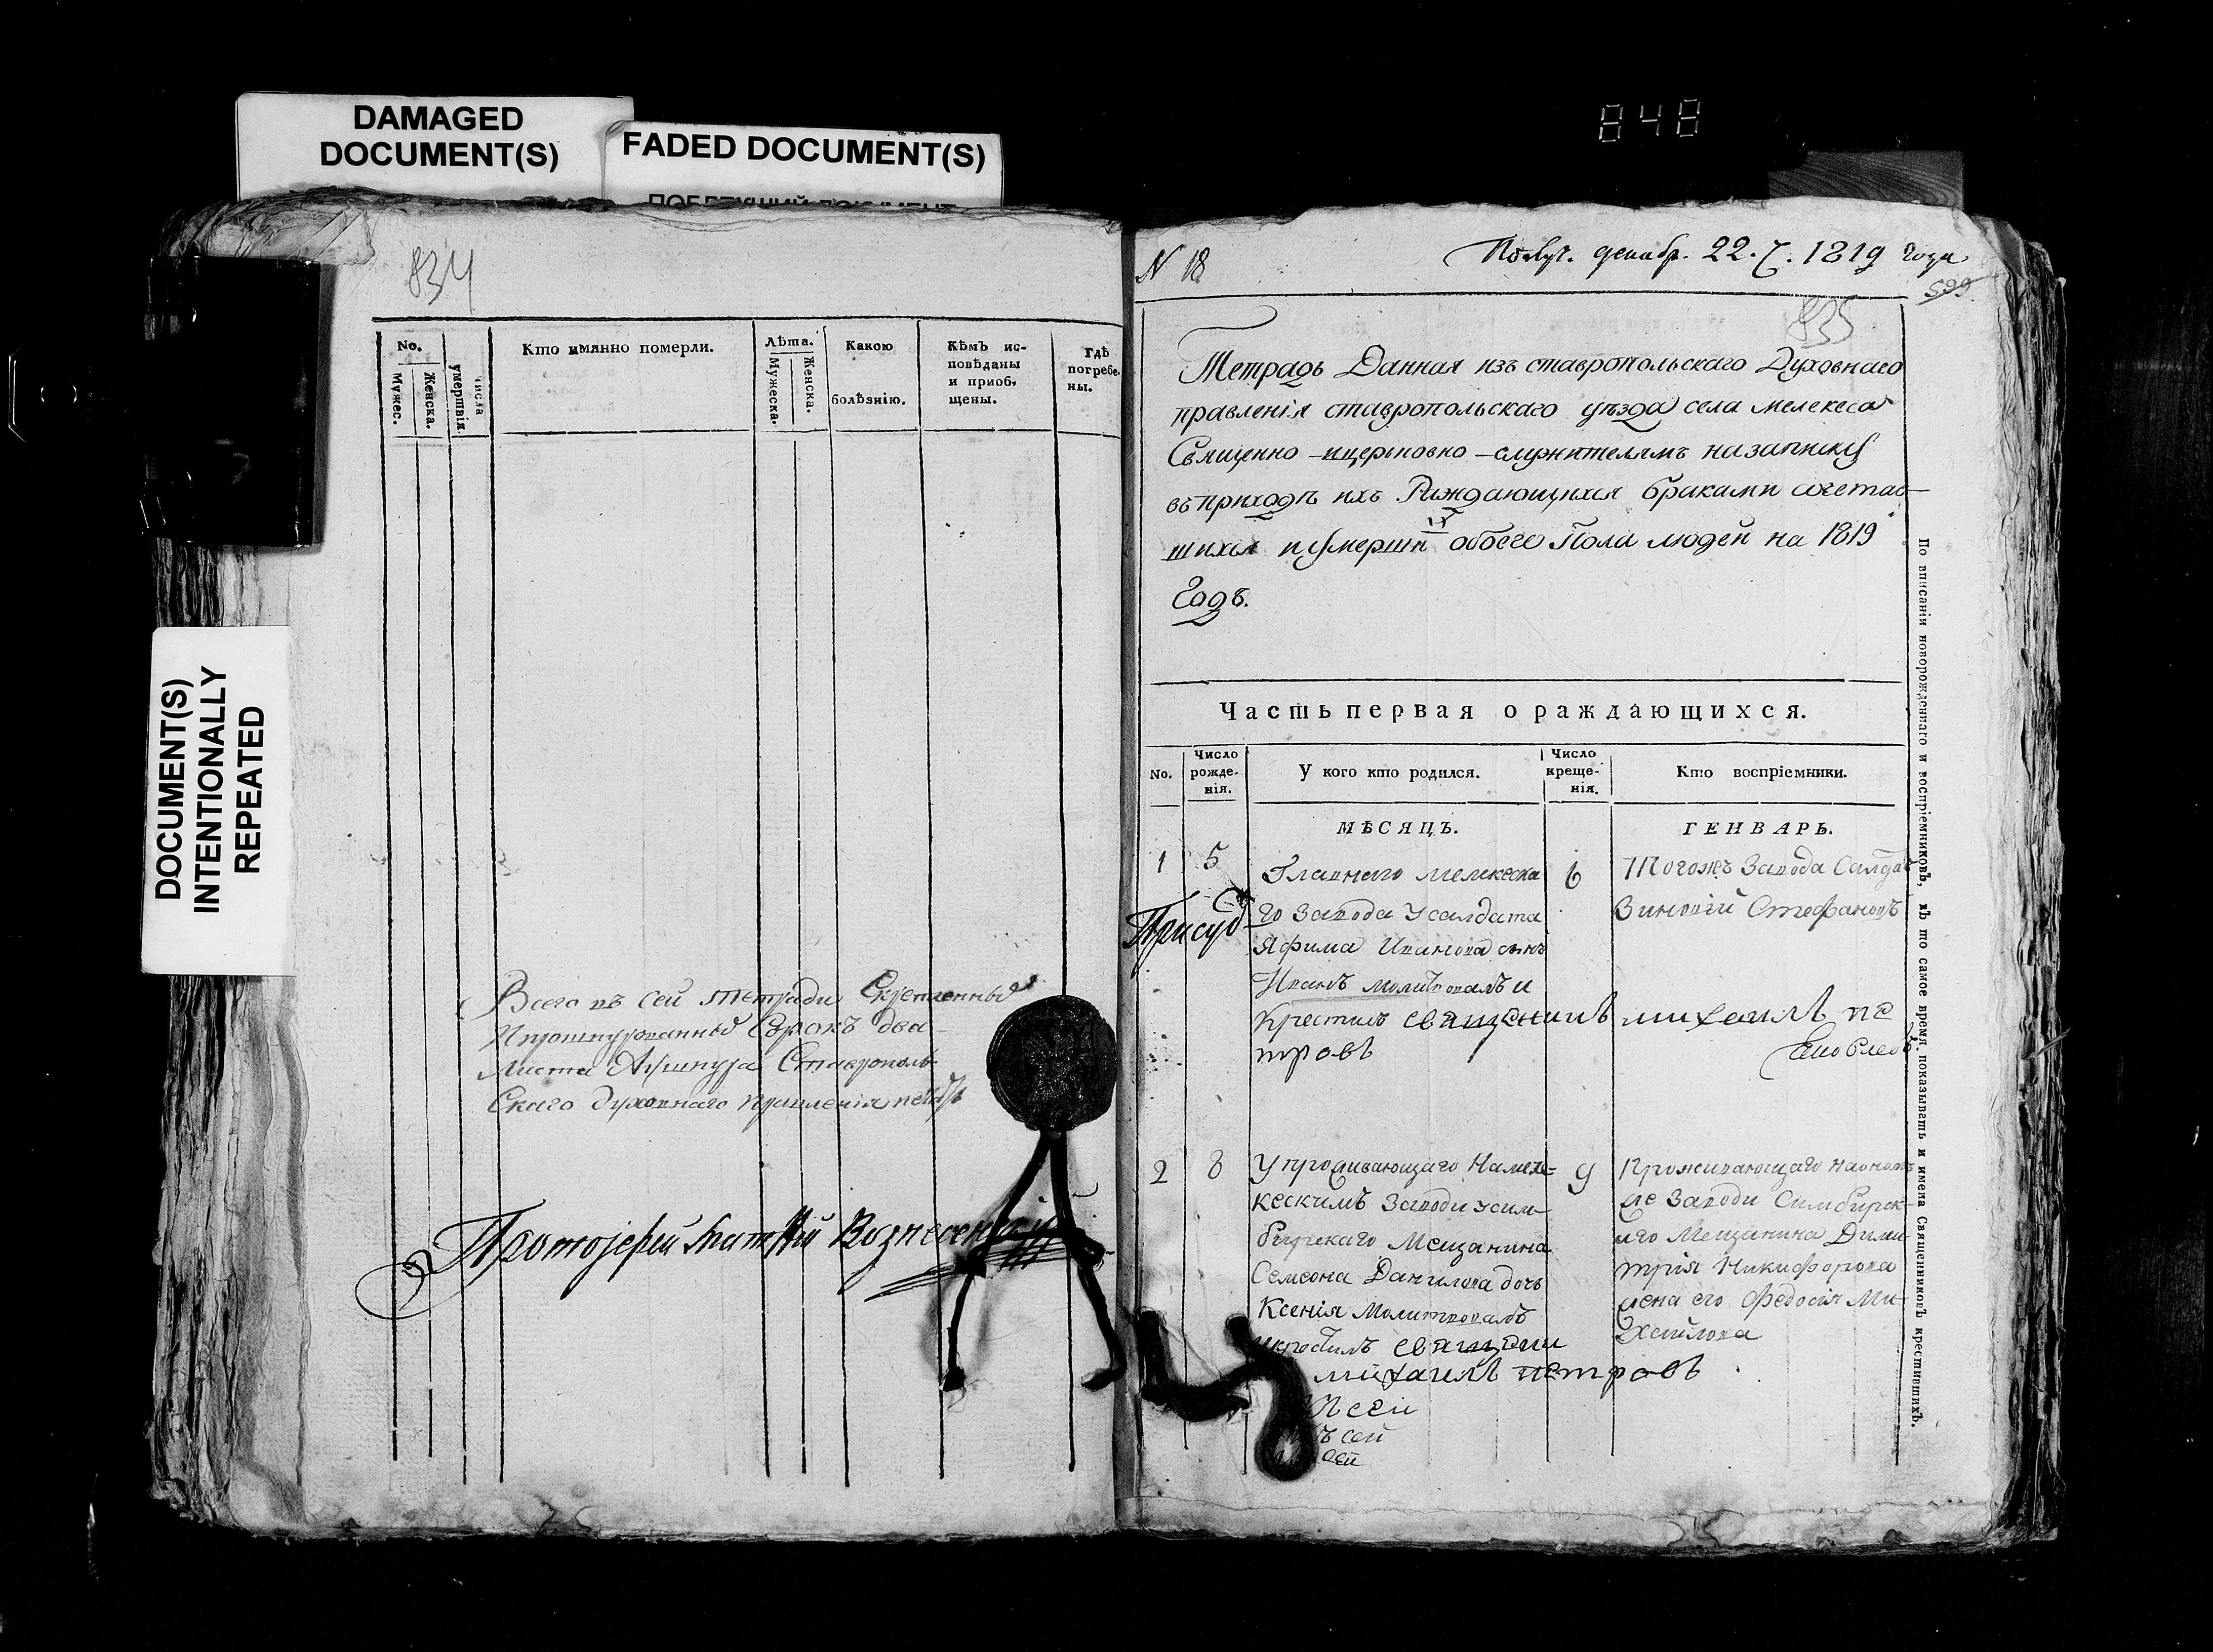 DAMAGED
DOCUMENT(S)
FADED DOCUMENT(S)
DOCUMENT(S)
INTENTIONALLY
REPEATED
848
834
No.
Мужес.
Женска.
числа
умертвія.
Кто имянно померли.
Лѣта.
Мужеска.
Женска.
Какою
болѣзнію.
Кѣмъ ис-
повѣданы
и приоб-
щены.
Гдѣ
погребе-
ны.
Всего въ сей тетради Скрепленныхъ
Ипрошнурованныхъ Сорокъ два
листа Ставрополь
Скаго духовнаго правленія
Протоіерей Матѳей Вознесенскій
N 18
Получ. декабр. 22. 1819 года
599
835
Тетрадь Данная изъ ставропольскаго Духовнаго
правленія ставропольскаго уѣзда села мелекеса
Священно-ицерковно-служителямъназаписку
въприходѣ ихъ Раждающихся браками сочетав-
шихся иумерши хъ обоего Пола людей на 1819
Годъ.
Часть первая о раждающихся.
No.
Число
рожде-
нія.
У кого кто родился.
Число
креще-
нія.
Кто воспріемники.
МѢСЯЦЪ.
ГЕНВАРЬ.
1
5
Главнаго мелекеска
го Завода Усалдата
Яфима Иванова сынъ
Иванъ молитвовалъ и
Крестилъ священникъ михаилъ пе
тровъ
6
Тогожъ Завода Салдатъ
Зиновій Стефановъ
Яковлевъ
Присуд
2
8
Упроживающаго Намеле-
кескимъ Заводи усим-
бирскаго Мещанина
Семеона Данилова дочь
Ксенія Молитвовалъ
икрестилъ священи
михаилъ петровъ
9
Проживающаго наономъ
же Заводи Симбирск-
аго Мещанина Дими-
трія Никифорова
жена его Федосія Ми-
хайлова
сей
сей
По вписаніи новорожденнаго и воспріемниковъ, въ то самое время показывать и имена Священниковъ крестившихъ.